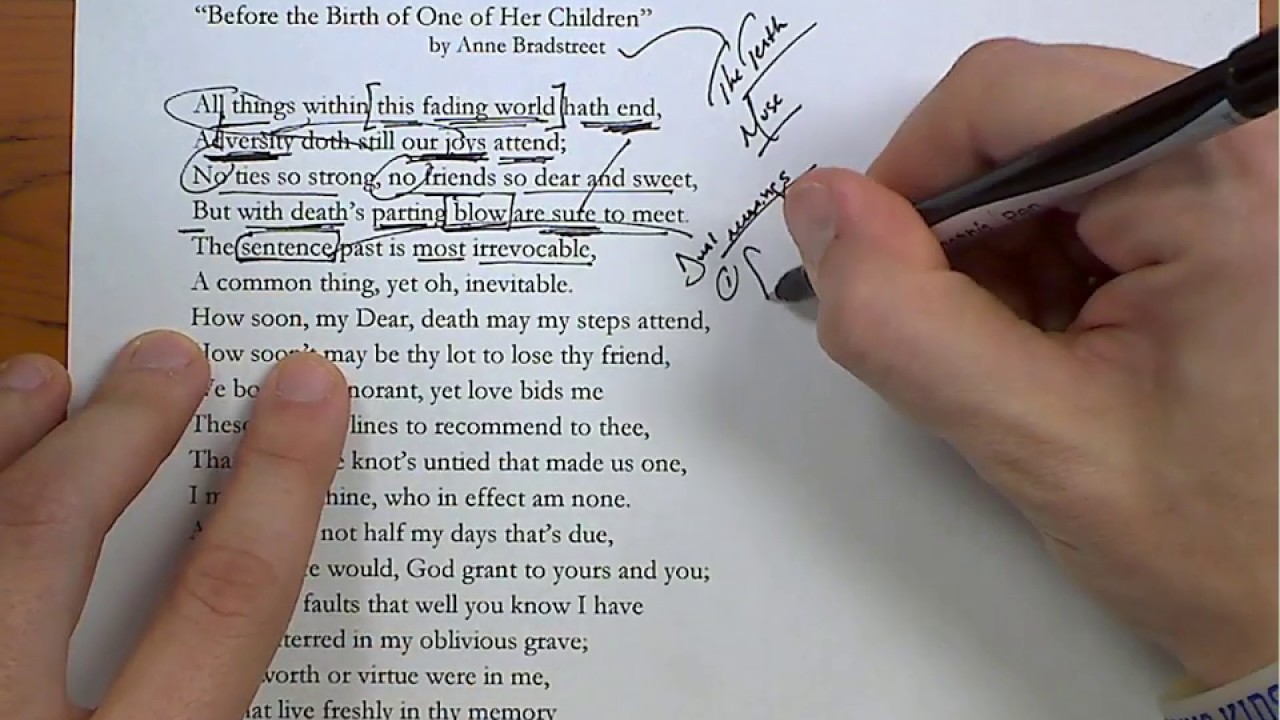 “Before the Birth of One of Her Children”
by Anne Bradstreet
The Tenth
Muse
All things within this fading world hath end,
Adversity doth still our joys attend;
No ties so strong, no friends so dear and sweet,
But with death’s parting blow are sure to meet.
The sentence past is most irrevocable,
A common thing, yet oh, inevitable.
Dual meanings
①
How soon, my Dear, death may my steps attend,
How soon’t may be thy lot to lose thy friend,
We norant, yet love bids me
These lines to recommend to thee,
knot’s untied that made us one,
I hine, who in effect am none.
not half my days that’s due,
would, God grant to yours and you;
faults that well you know I have
terred in my oblivious grave;
worth or virtue were in me,
at live freshly in thy memory
Pen